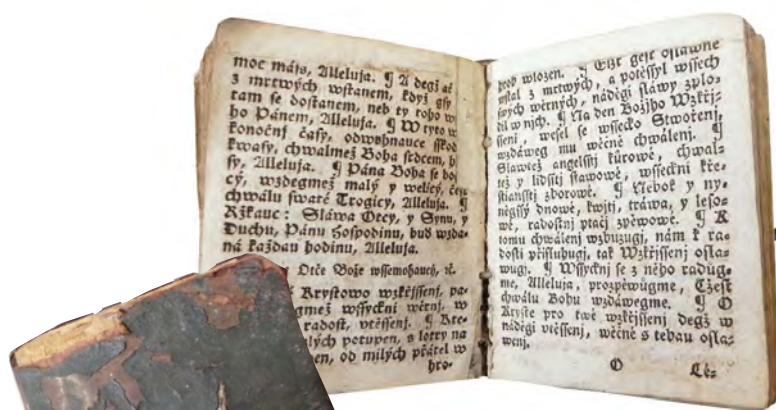 moc máſs, Alleluja. ¶ A degž ať
z mrtwých wſtanem, když gſy
tam ſe doſtanem, neb ty toho w
ho Pánem, Alleluja. ¶ W tyto w
konočnj čaſy, odwrhnauce ſſkod
kwaſy, chwalmež Boha ſrdcem, h
ſy, Alleluja. ¶ Pána Boha ſe bog
cý, wzdegmež malý y welicý, čeſt
chwálu ſwaté Trogicy, Alleluja. ¶
Ržkauc: Sláwa Otcy, y Synu, y
Duchu, Pánu Hoſpodinu, buď wzda-
ná každau hodinu, Alleluja.
Otče Bože wſſemohaucý, ꝛč.
Kryſtowo wzkřjſſenj, pa-
gmež wſſyckni wěrnj, w
radoſt, vtěſſenj. ¶ Kte-
lých potupen, s lotry na
en, od milých přátel w
hro-
hrob wlozen. ¶ Giž geſt oſlawně
wſtal z mrtwých, a potěſſyl wſſech
ſwých wěrných, náděgi ſláwy zplo-
dil w nich. ¶ Na den Božjho Wzkřj-
ſſenj, weſel ſe wſſecko Stwořenj,
wzdáweg mu wěčné chwálenj. ¶
Slawtež angelſſtj kůrowé, chwal-
tež y lidſſtj ſtawowé, wſſeckni kře-
ſtianſſtj zborowé. ¶ Neboť y ny-
něgſſý dnowé, kwjtj, tráwa, y leſo-
wé, radoſtnj ptácý zpěwowé. ¶ K
tomu chwálenj wzbuzugj, nám k ra-
doſti přjſluhugj, tak Wzkřjſſenj oſla-
wugj. ¶ Wſſyckni ſe z něho radůg-
me, Alleluja, prozpěwůgme, Čžeſt
chwálu Bohu wzdáwegme. ¶ O
Kryſte pro twé wzkřjſſenj degž w
náděgi vtěſſenj, wěčné s tebau oſla-
wenj.
O Lé-